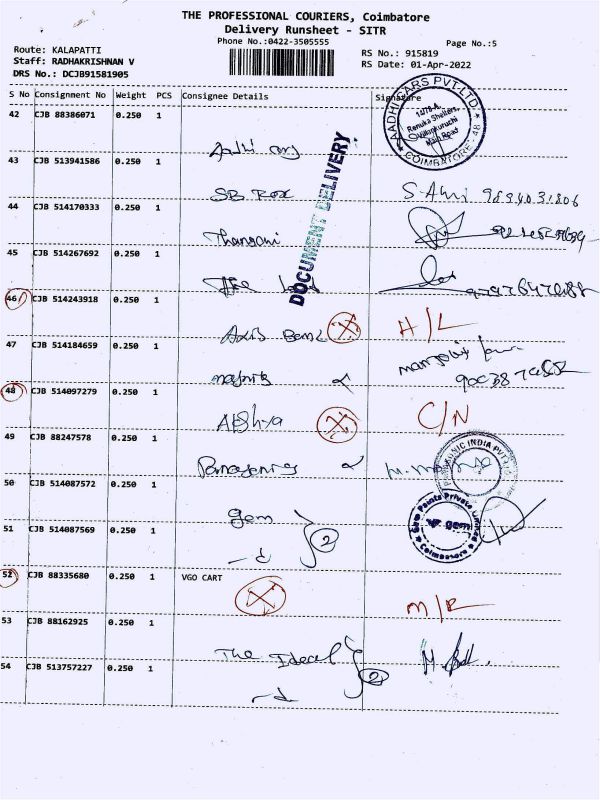 THE PROFESSIONAL COURIERS, Coimbatore
Delivery Runsheet - SITR
Phone No.:0422-3505555
Page No.:5
Route: KALAPATTI
RS No.: 915819
Staff: RADHAKRISHNAN V
RS Date: 01-Apr-2022
DRS No.: DCJB91581905
S No Consignment No Weight PCS Consignee Details Signature
42 CJB 88386071 0.250 1
AADHI CARS PVT LTD
12/78-A,
Renuka Shelters,
Main Road
COIMBATORE - 48
Aadhi cars
DOCUMENT DELIVERY
43 CJB 513941586 0.250 1
SB Rox
44 CJB 514170333 0.250 1
Thangani
45 CJB 514267692 0.250 1
The
46 CJB 514243918 0.250 1
Axis Bank H/L
47 CJB 514184659 0.250 1
48 CJB 514097279 0.250 1
C/N
49 CJB 88247578 0.250 1
INDIA PVT LTD
50 CJB 514087572 0.250 1
gem
Gem Paints Private Limited
gem
Coimbatore
51 CJB 514087569 0.250 1
-d 2
52 CJB 88335680 0.250 1 VGO CART
M/R
53 CJB 88162925 0.250 1
The Ideal
54 CJB 513757227 0.250 1
-d 2